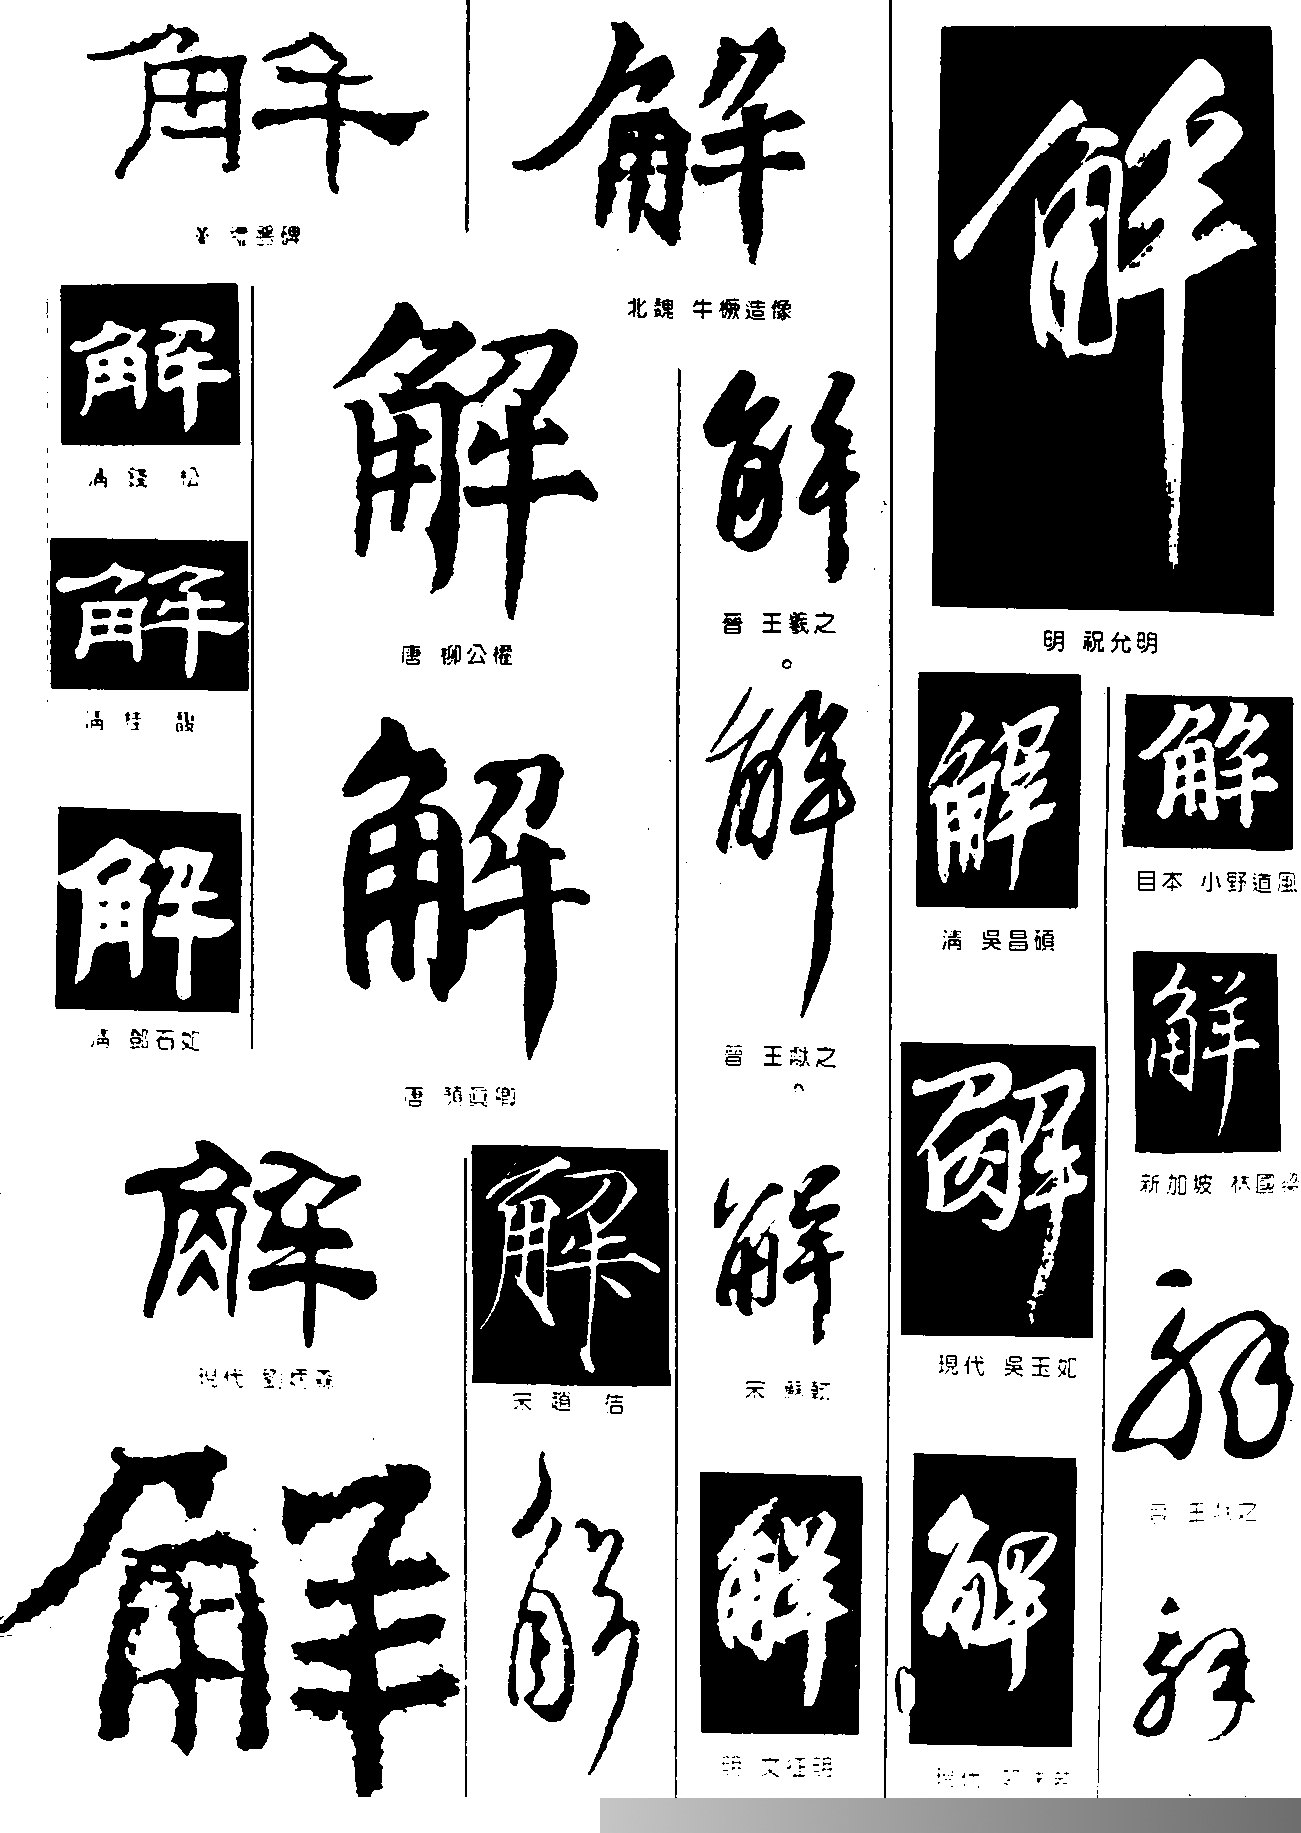 解
解
解
北魏 牛橛造像
解
清 錢 松
解
唐 柳公權
解
晉 王羲之
明 祝允明
解
清 桂 馥
解
清 鄧石如
解
唐 顏真卿
解
晉 王獻之
解
清 吳昌碩
解
日本 小野道風
解
現代 劉炳森
解
宋 趙 佶
解
宋 蘇軾
解
現代 吳玉如
解
新加坡 林國梁
解
晉 王羲之
解
解
解
明 文征明
解
現代
解